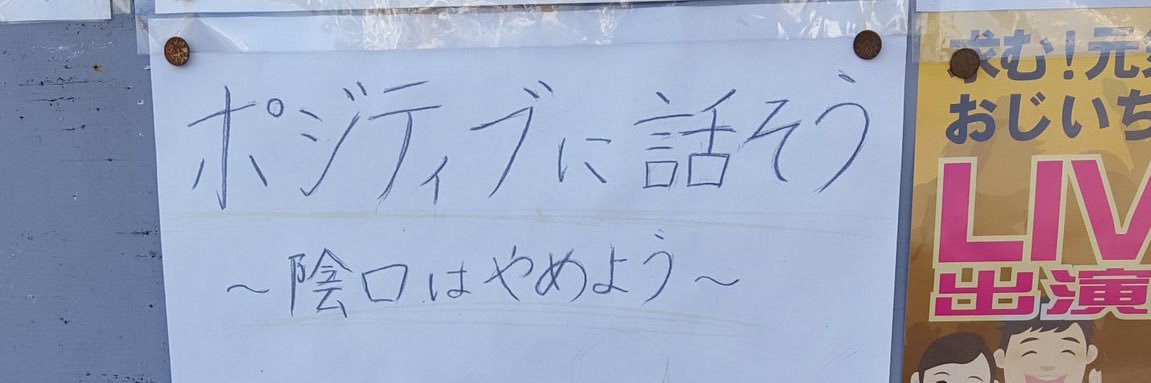 ポジティブに話そう
~陰口はやめよう~
求む!元
おじいち
LIV
出演